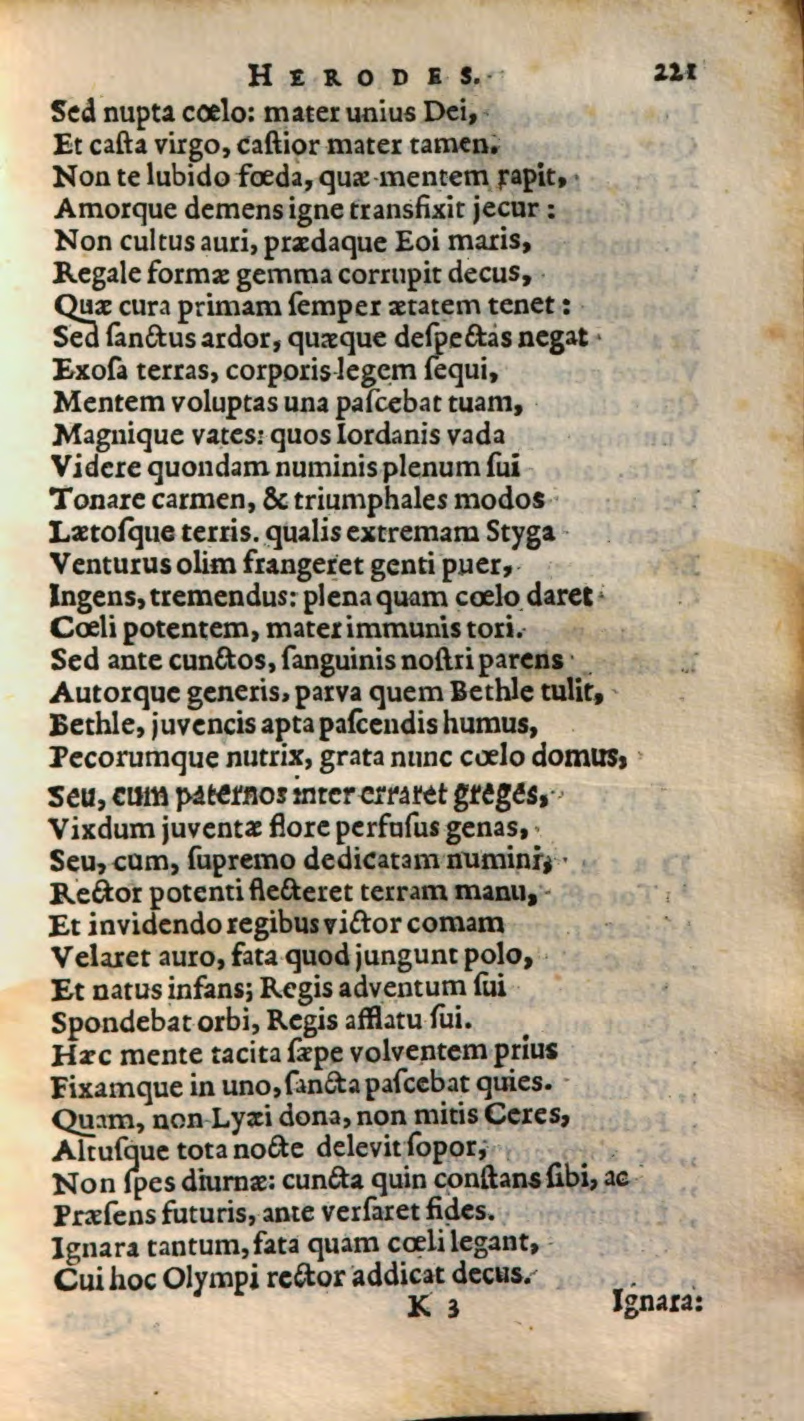 HERODES. 221
Sed nupta cœlo: mater unius Dei,
Et caſta virgo, caſtior mater tamen.
Non te lubido fœda, quæ mentem rapit,
Amorque demens igne transfixit jecur:
Non cultus auri, prædaque Eoi maris,
Regale formæ gemma corrupit decus,
Quæ cura primam ſemper ætatem tenet:
Sed ſanctus ardor, quæque deſpectas negat
Exoſa terras, corporis legem ſequi,
Mentem voluptas una paſcebat tuam,
Magnique vates: quos Iordanis vada
Videre quondam numinis plenum ſui
Tonare carmen, & triumphales modos
Lætoſque terris. qualis extremam Styga
Venturus olim frangeret genti puer,
Ingens, tremendus: plena quam cœlo daret
Cœli potentem, mater immunis tori.
Sed ante cunctos, ſanguinis noſtri parens
Autorque generis, parva quem Bethle tulit,
Bethle, juvencis apta paſcendis humus,
Pecorumque nutrix, grata nunc cœlo domus,
Seu, cum paternos inter erraret greges,
Vixdum juventæ flore perfuſus genas,
Seu, cum, ſupremo dedicatam numini,
Rector potenti flecteret terram manu,
Et invidendo regibus victor comam
Velaret auro, fata quod jungunt polo,
Et natus infans; Regis adventum ſui
Spondebat orbi, Regis afflatu ſui.
Hæc mente tacita ſæpe volventem prius
Fixamque in uno, ſancta paſcebat quies.
Quam, non Lyæi dona, non mitis Ceres,
Altuſque tota nocte delevit ſopor,
Non ſpes diurnæ: cuncta quin conſtans ſibi, ac
Præſens futuris, ante verſaret fides.
Ignara tantum, fata quam cœli legant,
Cui hoc Olympi rector addicat decus.
K 3 Ignara: